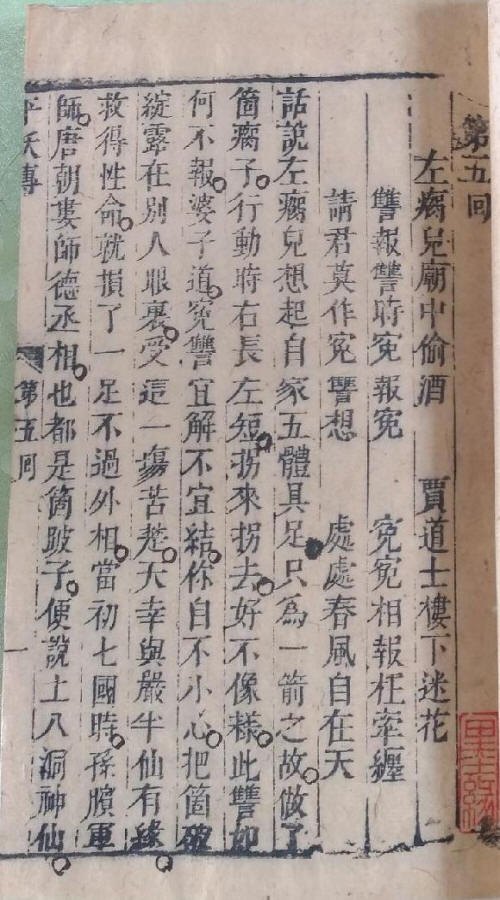 第五回
左瘸兒廟中偷酒　賈道士樓下迷花
讐報讐時寃報寃　寃寃相報枉牽纏
請君莫作寃讐想　處處春風自在天
話說左瘸兒想起自家五體具足只為一箭之故做了
箇瘸子行動時右長左短拐來拐去好不像樣此讐如
何不報婆子道寃讐宜解不宜結你自不小心把箇破
綻露在別人眼裏受這一場苦楚天幸與嚴半仙有緣
救得性命就損了一足不過外相當初七國時孫臏軍
師唐朝婁師德丞相也都是箇跛子便說上八洞神仙
平妖傳　第五回　一